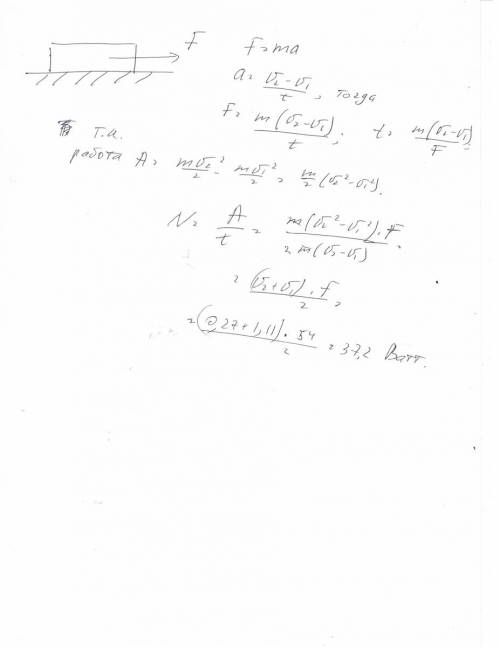 F
F = ma
a = (v₂ - v₁)/t, тогда
F = m(v₂ - v₁)/t; t = m(v₂ - v₁)/F;
т.а.
работа A = mv₂²/2 - mv₁²/2 = m/2 (v₂² - v₁²).
N = A/t = m(v₂² - v₁²)·F / 2m(v₂ - v₁) =
= (v₂ + v₁)·F / 2 =
= (0,27 + 1,11)·54 / 2 = 37,2 Ватт.